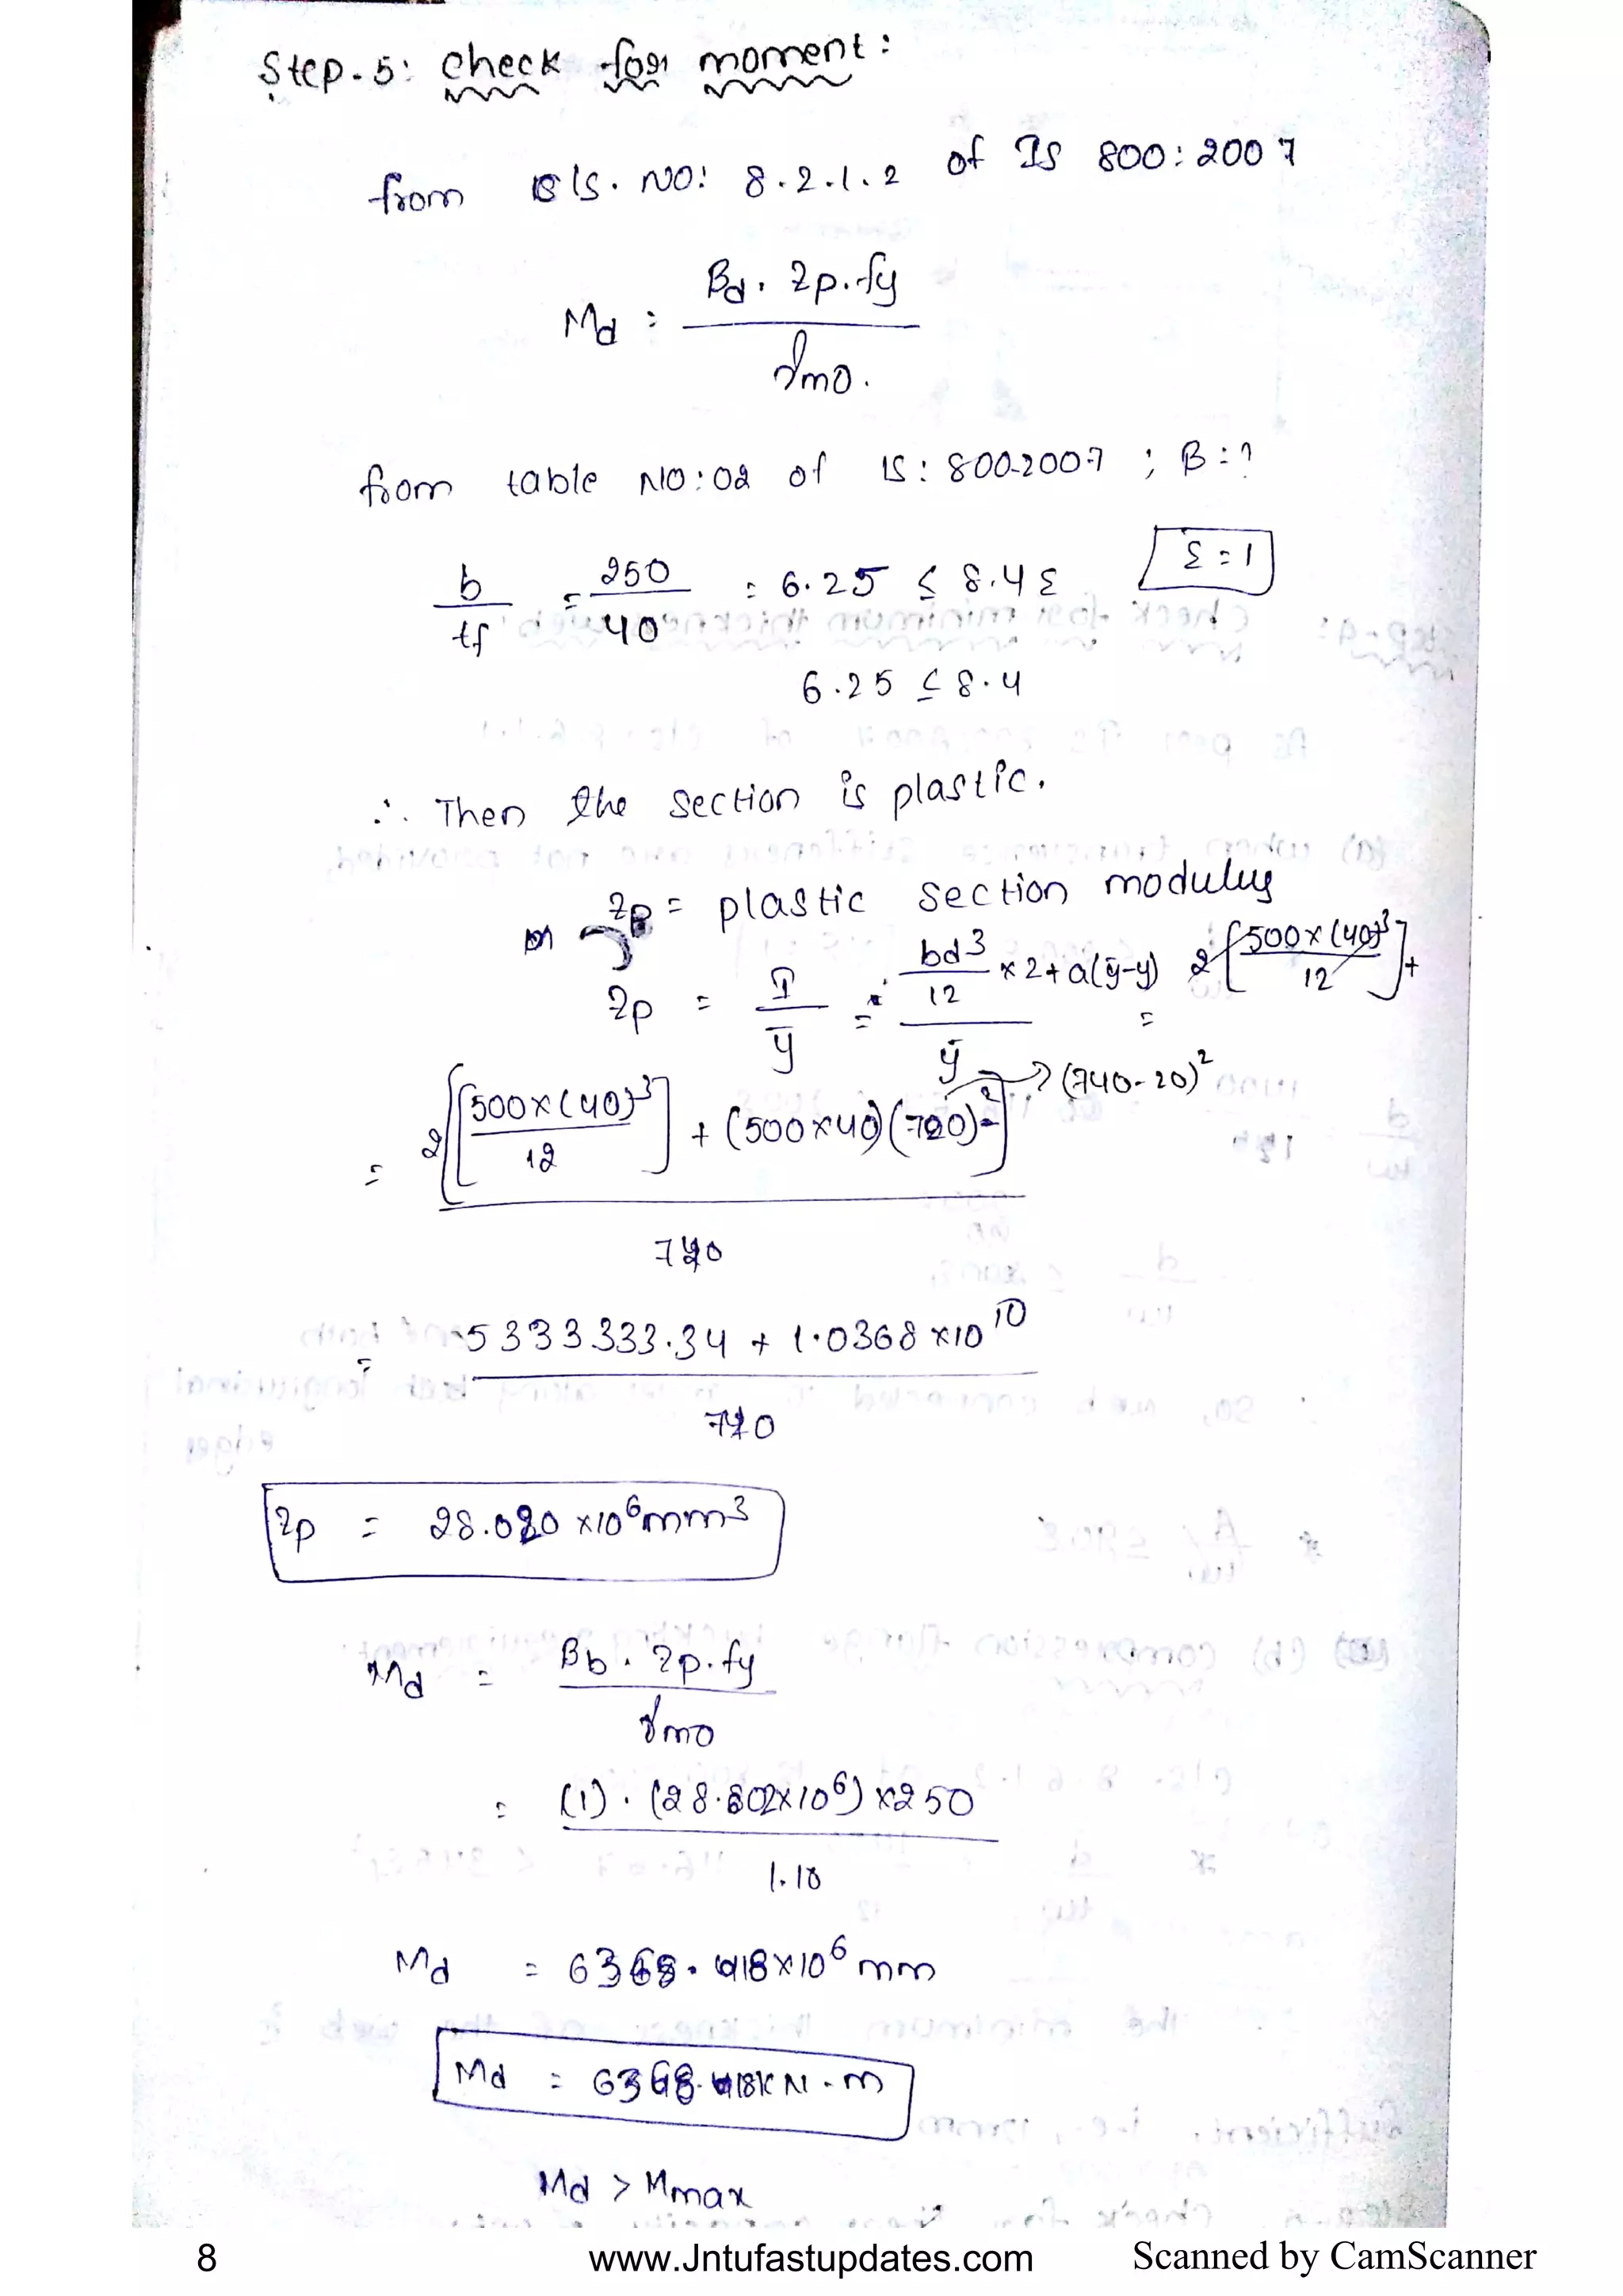 Step-5: check for moment:
from cls. NO: 8.2.1.2 of IS 800:2007
Md = βd. Zp.fy / γmo.
from table NO:02 of IS: 800-2007 ; β = ?
b / tf = 250 / 40 = 6.25 ≤ 8.4 ε ε = 1
6.25 ≤ 8.4
∴ Then the section is plastic.
Zp = plastic section modulus
Zp = I / ȳ = bd³ / 12 × 2 + a(ȳ-y) / ȳ = 2[500×(40)³ / 12] +
= 2[[500×(40)³ / 12] + (500×40)(720)²] / 740 → (740-20)²
= 5333333.34 + 1.0368×10¹⁰ / 740
Zp = 28.020 ×10⁶mm³
Md = βb. Zp.fy / γmo
= (1). (28.802×10⁶)×250 / 1.10
Md = 6368.418×10⁶ mm
Md = 6368.418KN-m
Md > Mmax
8 www.Jntufastupdates.com Scanned by CamScanner